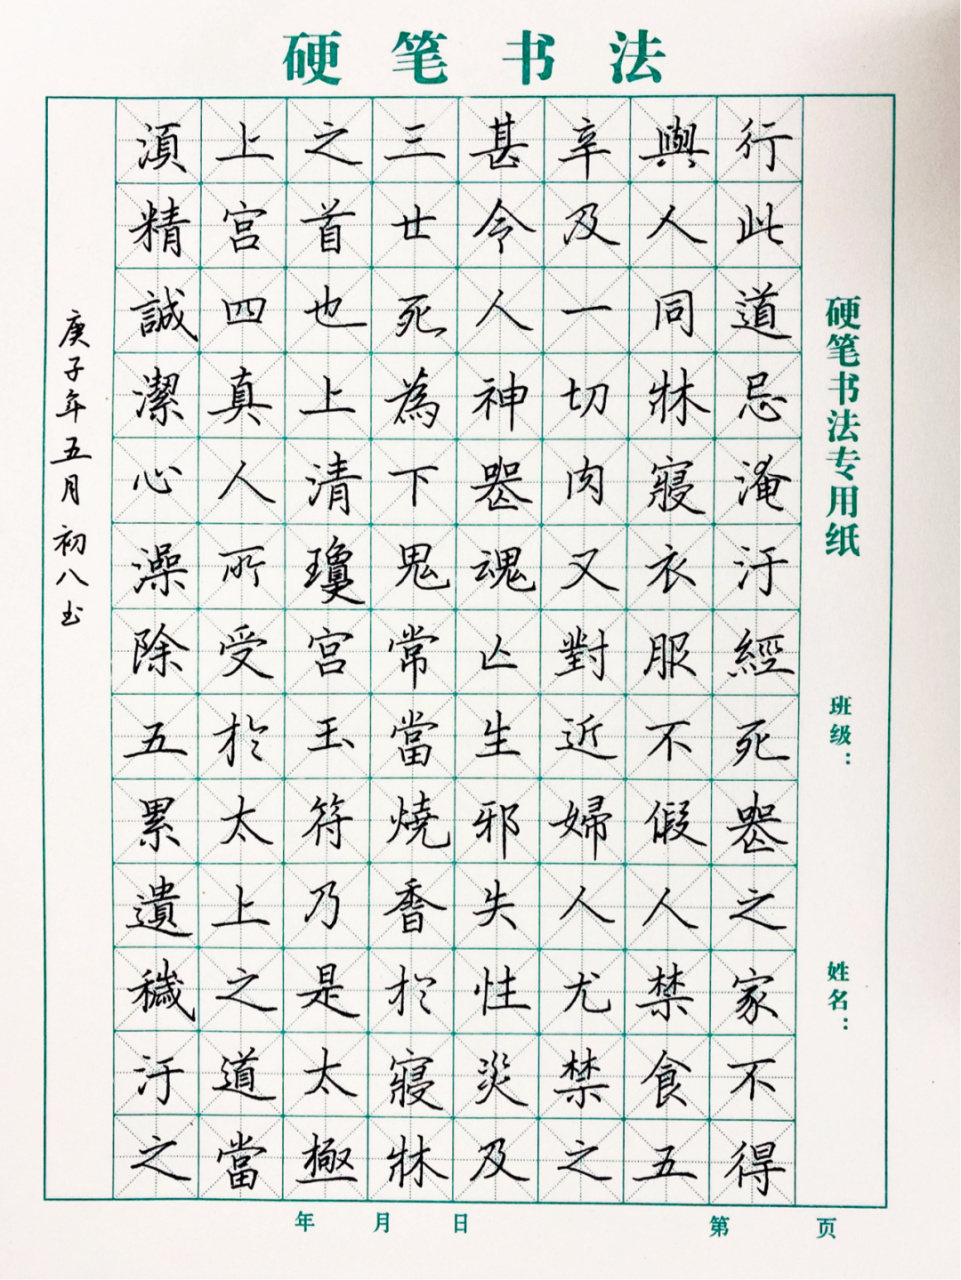 硬笔书法
硬笔书法专用纸
班级：
姓名：
行此道忌淹汙經死喪之家不得
與人同牀寢衣服不假人禁食五
辛及一切肉又對近婦人尤禁之
甚令人神喪魂亾生邪失性災及
三廿死為下鬼常當燒香於寢牀
之首也上清瓊宫玉符乃是太極
上宫四真人所受於太上之道當
湏精誠潔心澡除五累遺穢汙之
庚子年五月初八书
年 月 日
第 页